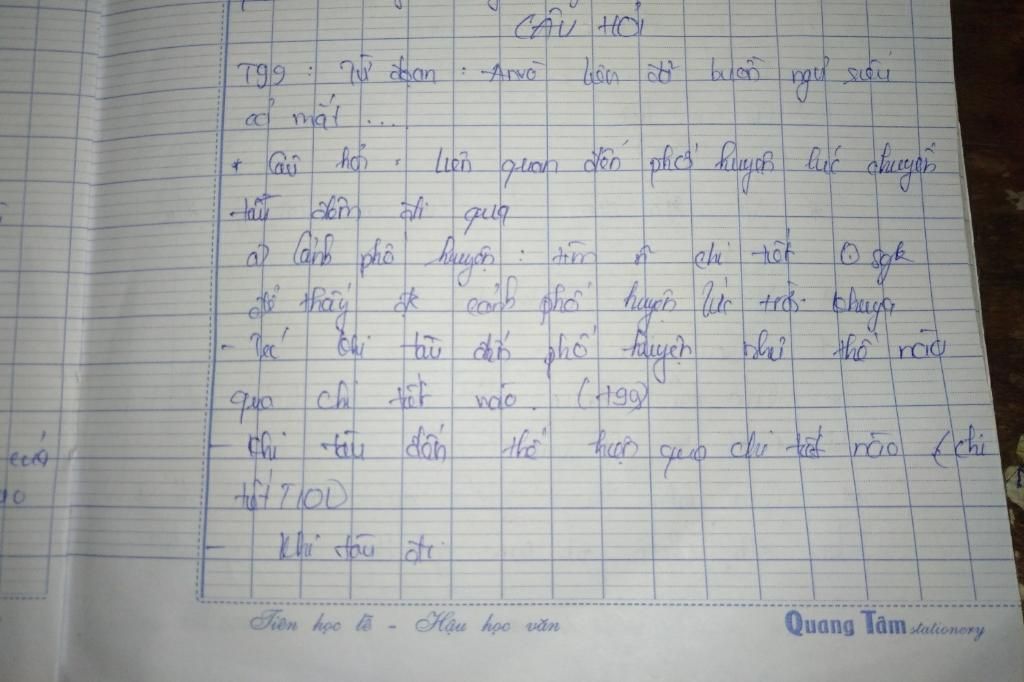 CÂU HỎI
T99: Từ đoạn: An và Liên đã buồn ngủ ríu
cả mắt ...
* Câu hỏi: Liên quan đến phố huyện lúc chuyến
tàu đêm đi qua
a) Cảnh phố huyện: tìm n~ chi tiết ở sgk
để thấy đk cảnh phố huyện lúc trời khuya
- khi tàu đến phố huyện như thế nào
qua chi tiết nào. (t99)
- Khi tàu đến thể hiện qua chi tiết nào (chi
tiết T100)
- Khi tàu đi
của
Tiên học lễ - Hậu học văn
Quang Tâm stationery